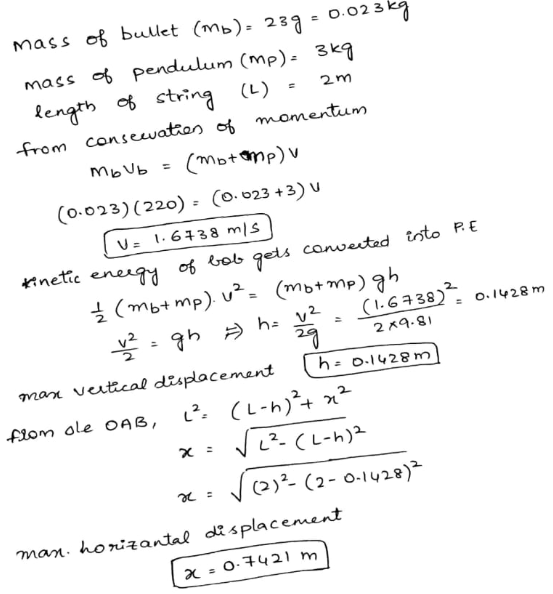 mass of bullet (mb) = 23g = 0.023kg
mass of pendulum (mp) = 3kg
length of string (L) = 2m
from conservation of momentum
mbVb = (mb+mp)V
(0.023)(220) = (0.023+3)V
V = 1.6738 m/s
kinetic energy of bob gets converted into P.E
1/2 (mb+mp). v² = (mb+mp) gh
v²/2 = gh ⇒ h = v²/2g = (1.6738)²/2×9.81 = 0.1428m
max vertical displacement h = 0.1428m
from ole OAB, L² = (L-h)² + x²
x = √L² - (L-h)²
x = √(2)² - (2-0.1428)²
max. horizantal displacement
x = 0.7421 m